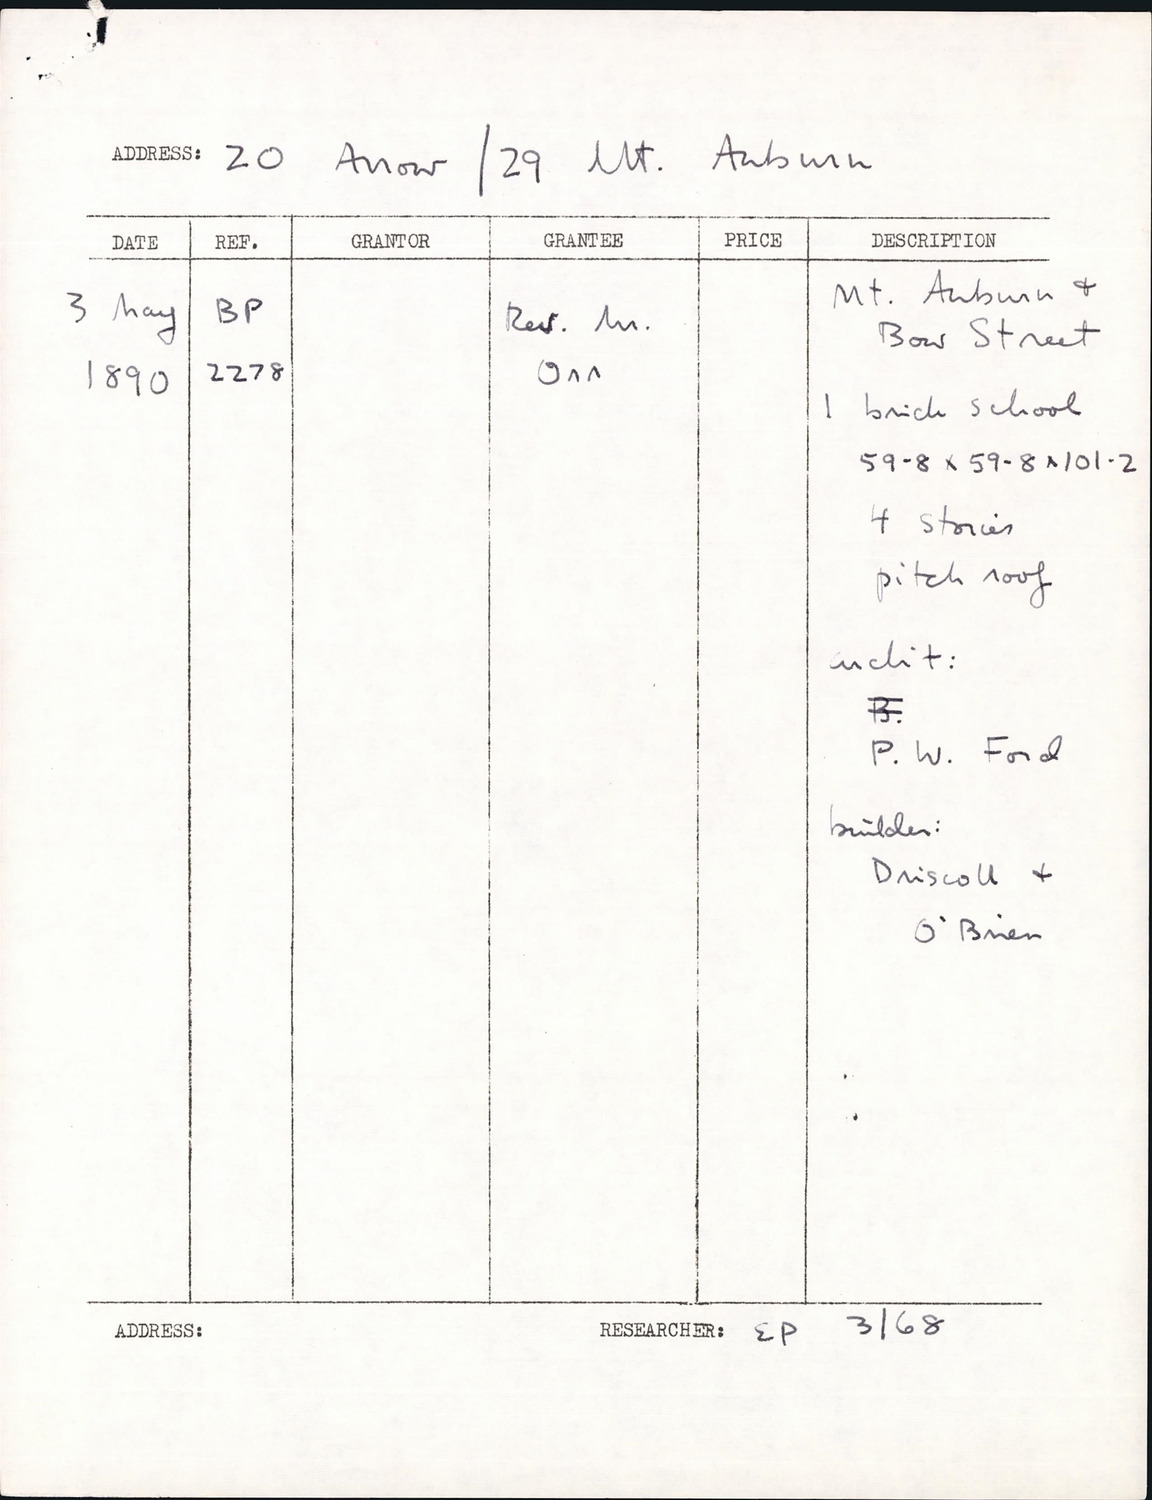 ADDRESS: 20 Arrow / 29 Mt. Auburn
DATE REF. GRANTOR GRANTEE PRICE DESCRIPTION
3 May BP Rev. Mr. Mt. Auburn &
1890 2278 Orr Bow Street
1 brick school
59-8 x 59-8 x 101-2
4 stories
pitch roof
archit:
B.
P. W. Ford
builder:
Driscoll &
O'Brien
ADDRESS: RESEARCHER: EP 3/68